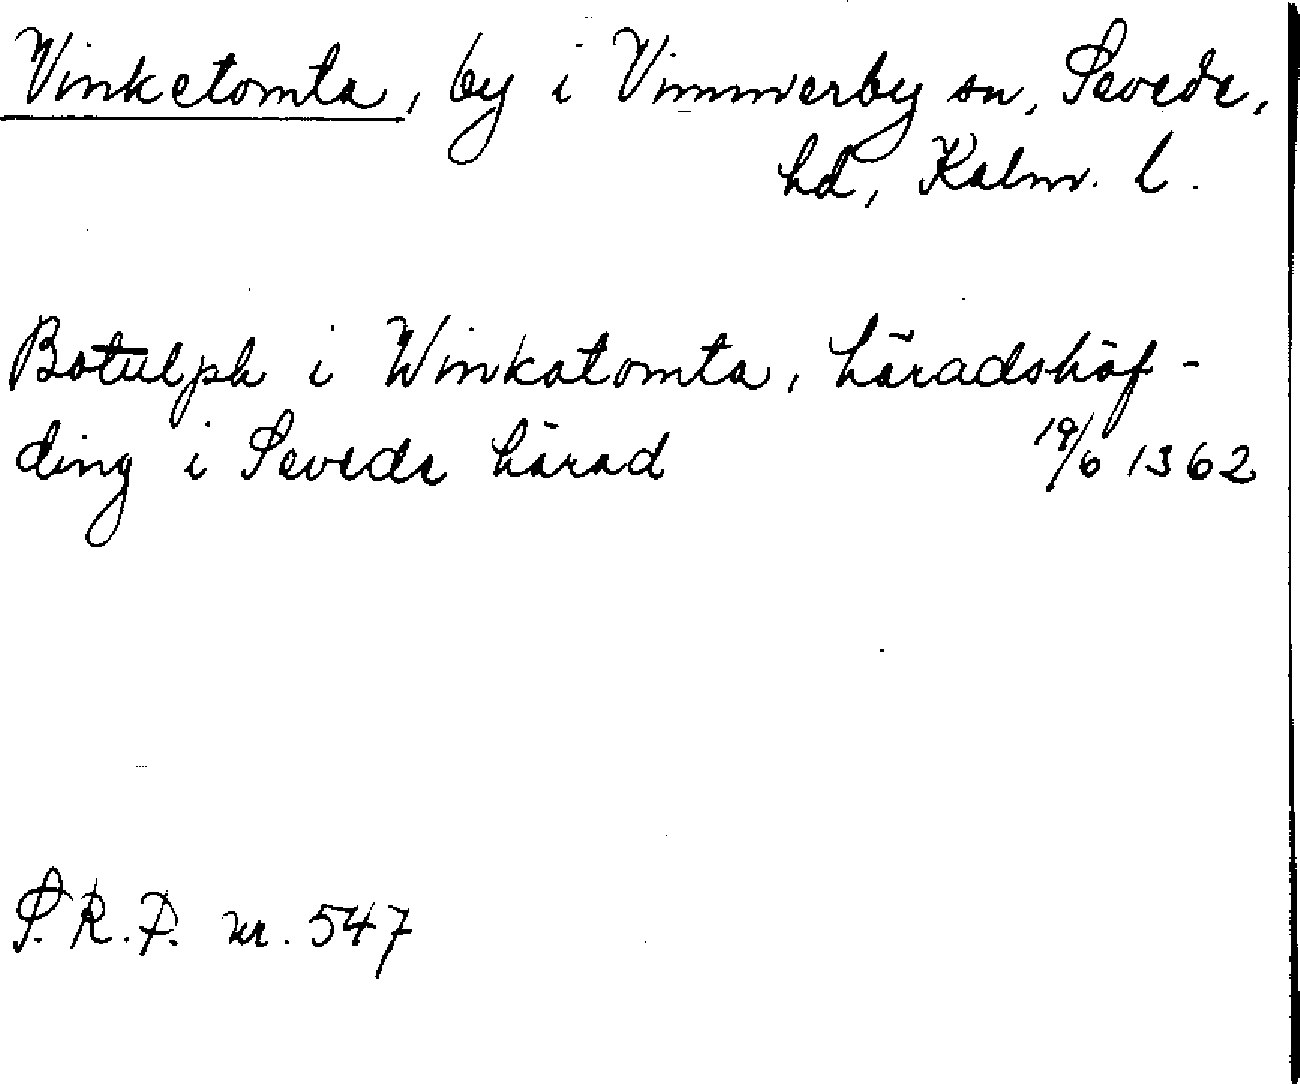 Vinketomta, by i Vimmerby sn, Sevede,
hd, Kalm. l.
Botulph i Winkatomta, häradshöf-
ding i Sevede härad 19/6 1362
S.R.P. nr. 547